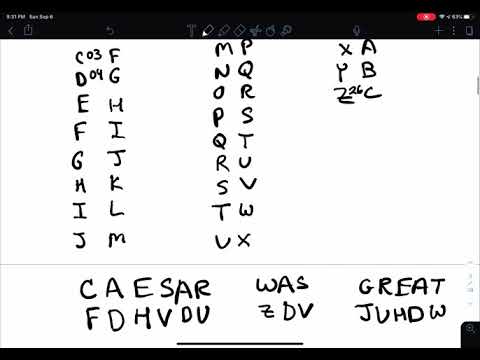 9:31 PM Sun Sep 6
C 03 F
D 04 G
E H
F I
G J
H K
I L
J M
M P
N Q
O R
P S
Q T
R U
S V
T W
U X
X A
Y B
Z 26 C
CAESAR WAS GREAT
FDHVDU ZDV JUHDW